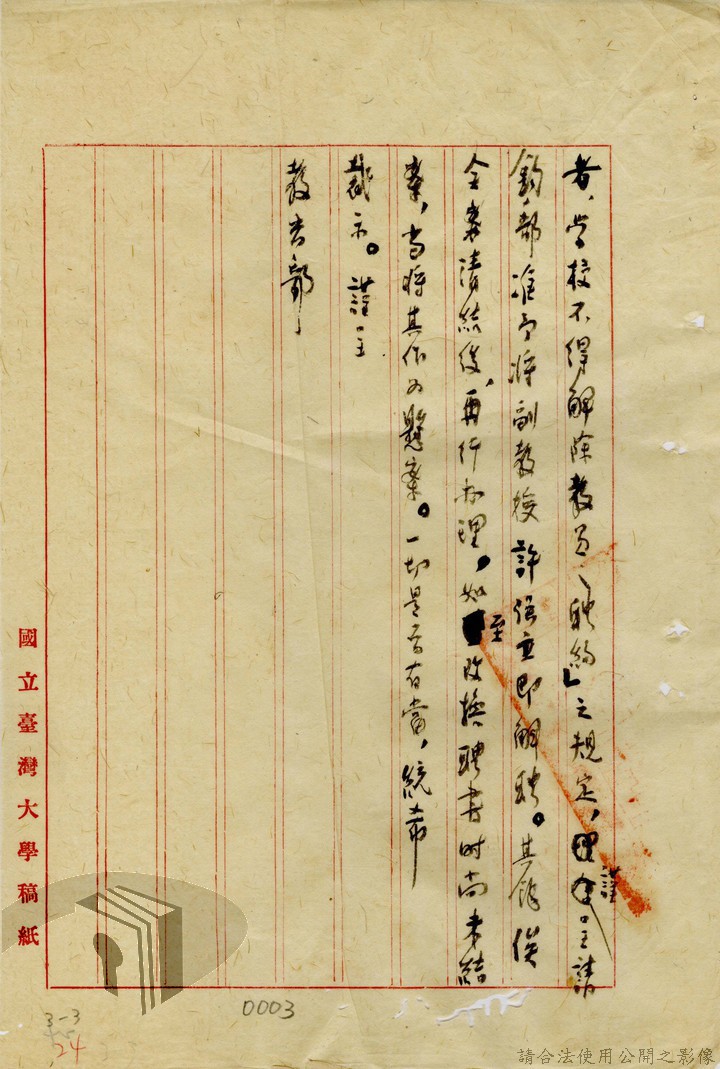 者，学校不得解除教員之聘約」之規定，謹呈請
鈞部准予將副教授許強立即解聘。其餘俟
全案清結後，再行办理，如至改換聘書时尚未結
案，当將其作为懸案。一切是否有當，統希
裁示。謹呈
教育部
國立臺灣大學稿紙
0003
3-3
24
請合法使用公開之影像